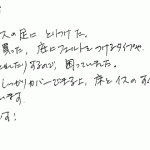 スの足に とりつけた。
買った、底にフェルトを つけるタイプや
したり)するので、困っていました。
しっかりカバーできる上、床とイスのす
います。
です!